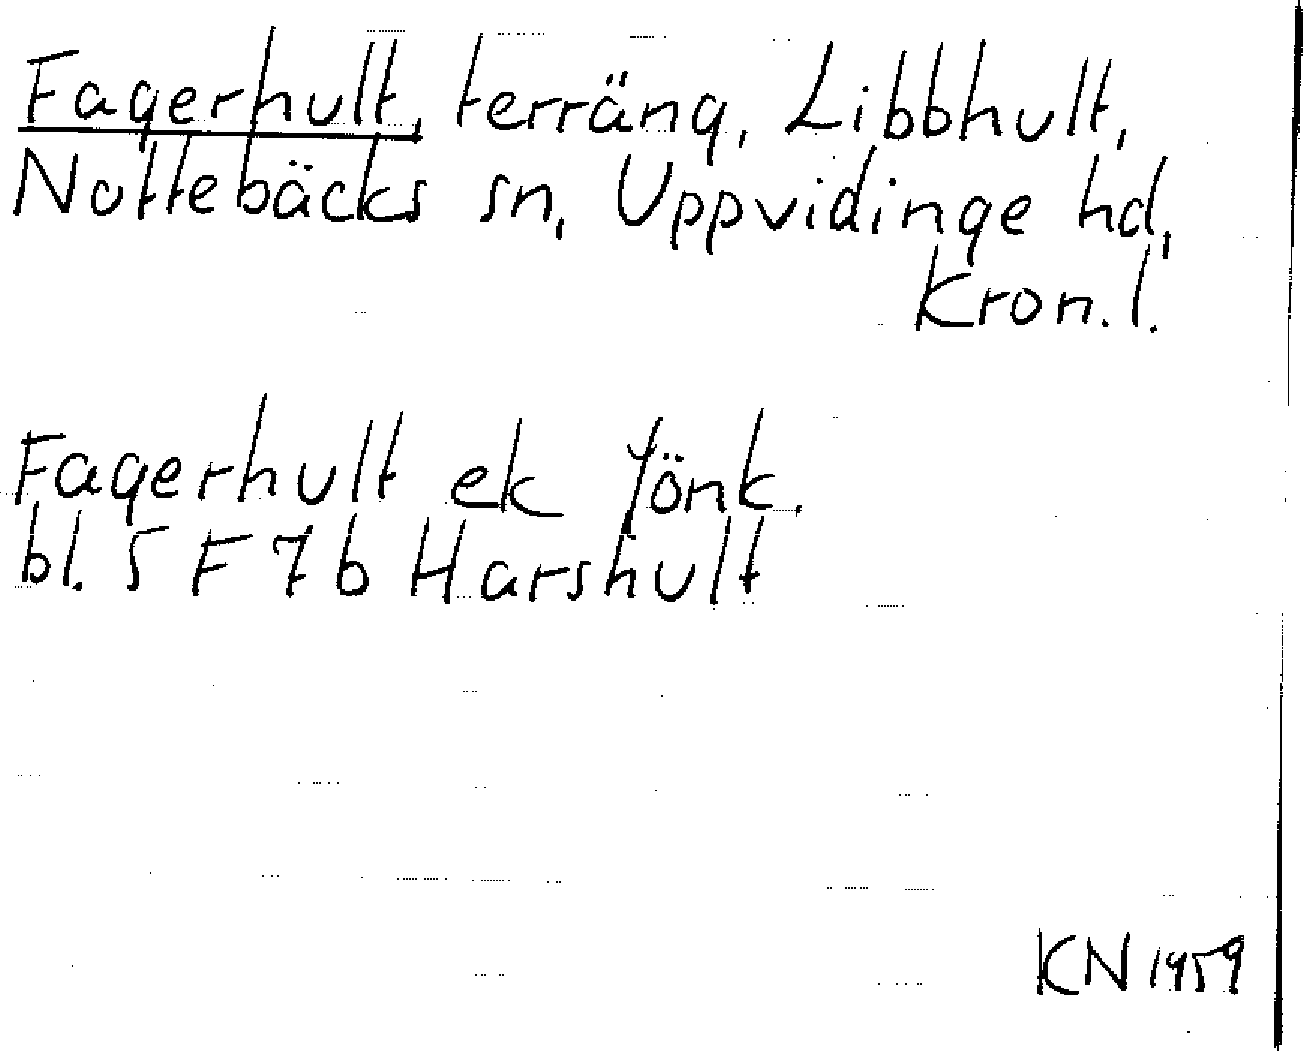 Fagerhult, terräng, Libbhult,
Nottebäcks sn, Uppvidinge hd,
Kron. l.
Fagerhult ek Jönk.
bl. 5 F 7 b Harshult
KN 1959